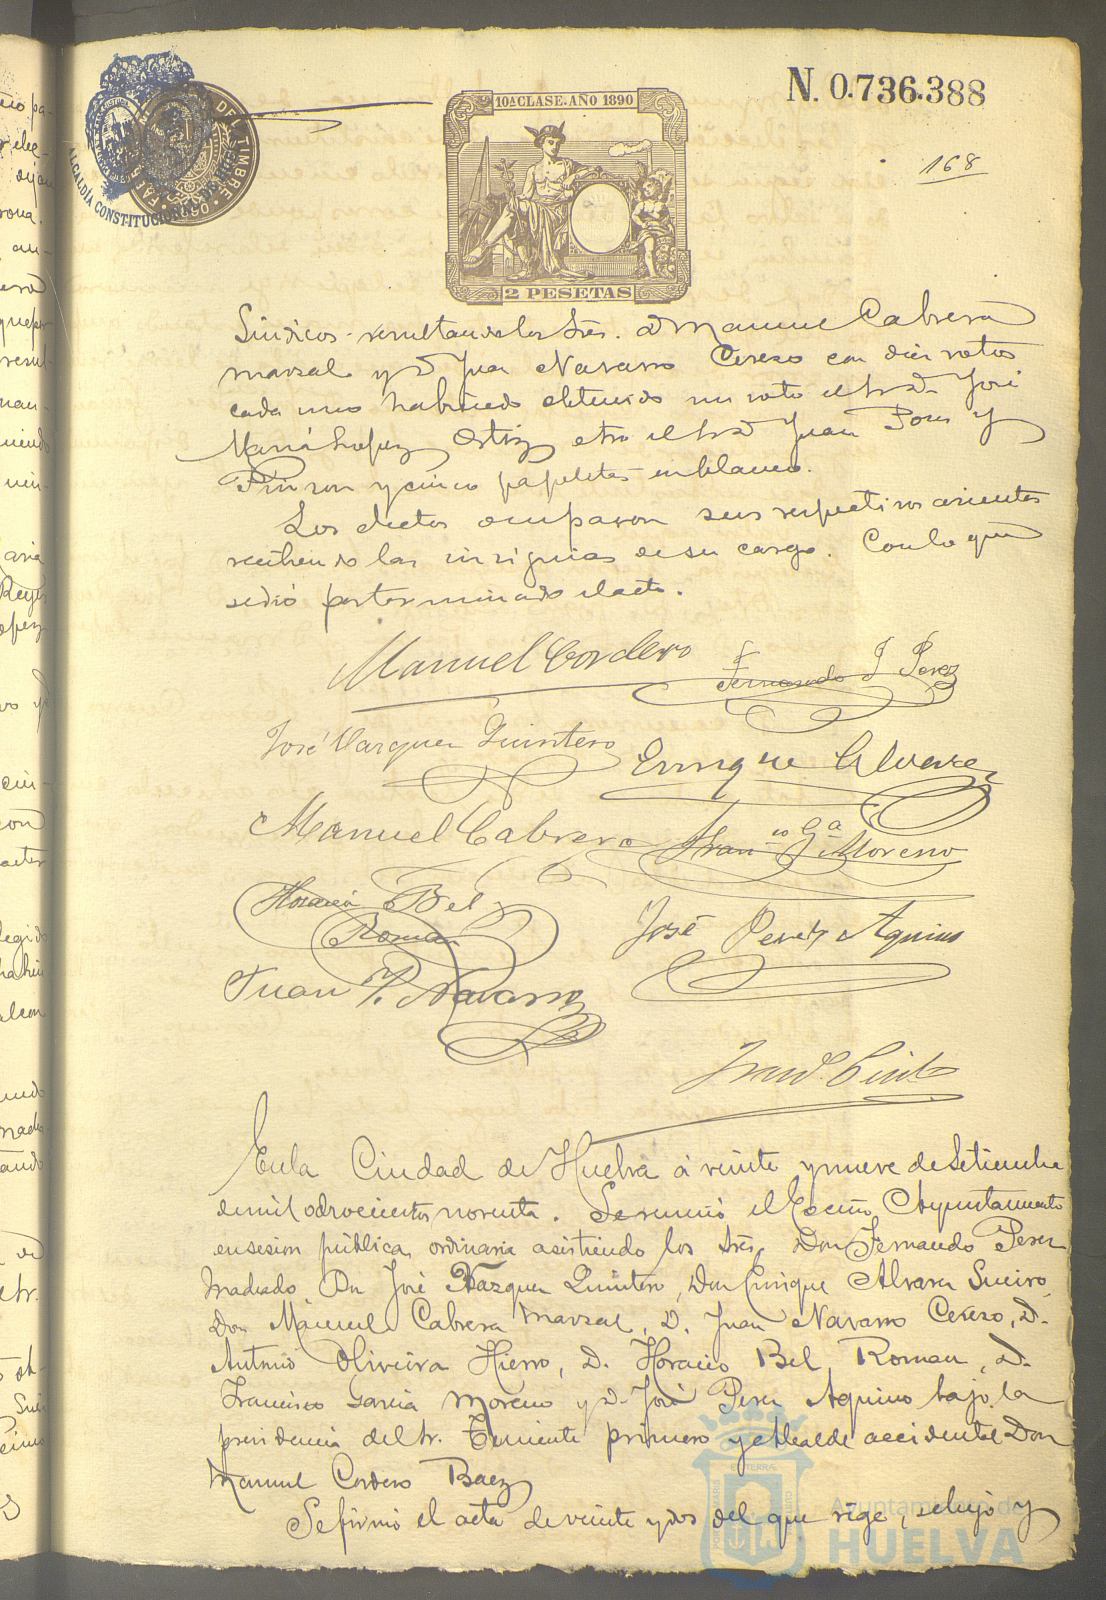 N. 0.736.388
10ª CLASE. AÑO 1890
DEL TIMBRE
ALCALDIA CONSTITUCIONAL
168
2 PESETAS
Sindicos resultando los Sres. D Manuel Cabrera
Marzal y D Juan Navarro Cerezo con diez votos
cada uno habiendo obtenido un voto el Sr D José
Maria Lopez Ortiz otro el Sr D Juan Pons y
Pinzon y cinco papeletas en blanco.
Los electos ocuparon sus respectivos asientos
recibiendo las insignias de su cargo. Con lo que
se dió por terminado el acto.
Manuel Cordero
Fernando J Perez
José Vazquez Quintero
Enrique Alvarez
Manuel Cabrera
Franco Ga Moreno
Horacio Bel
Roman
José Perez Aquino
Juan P. Navarro
En la Ciudad de Huelva á veinte y nueve de Setiembre
de mil ochocientos noventa. Se reunió el Excmo. Ayuntamiento
en sesion pública ordinaria asistiendo los Sres. Don Fernando Perez
Machado, Don José Vazquez Quintero, Don Enrique Alvarez Sueiro,
Don Manuel Cabrera Marzal, D. Juan Navarro Cerezo, D.
Antonio Oliveira Hierro, D. Horacio Bel Roman, D.
Francisco Garcia Moreno y D. José Perez Aquino bajo la
presidencia del Sr. Teniente primero y Alcalde accidental Don
Manuel Cordero Baez
Se firmó el acta de veinte y dos del que rige, se leyó y
Ayuntamiento de
HUELVA